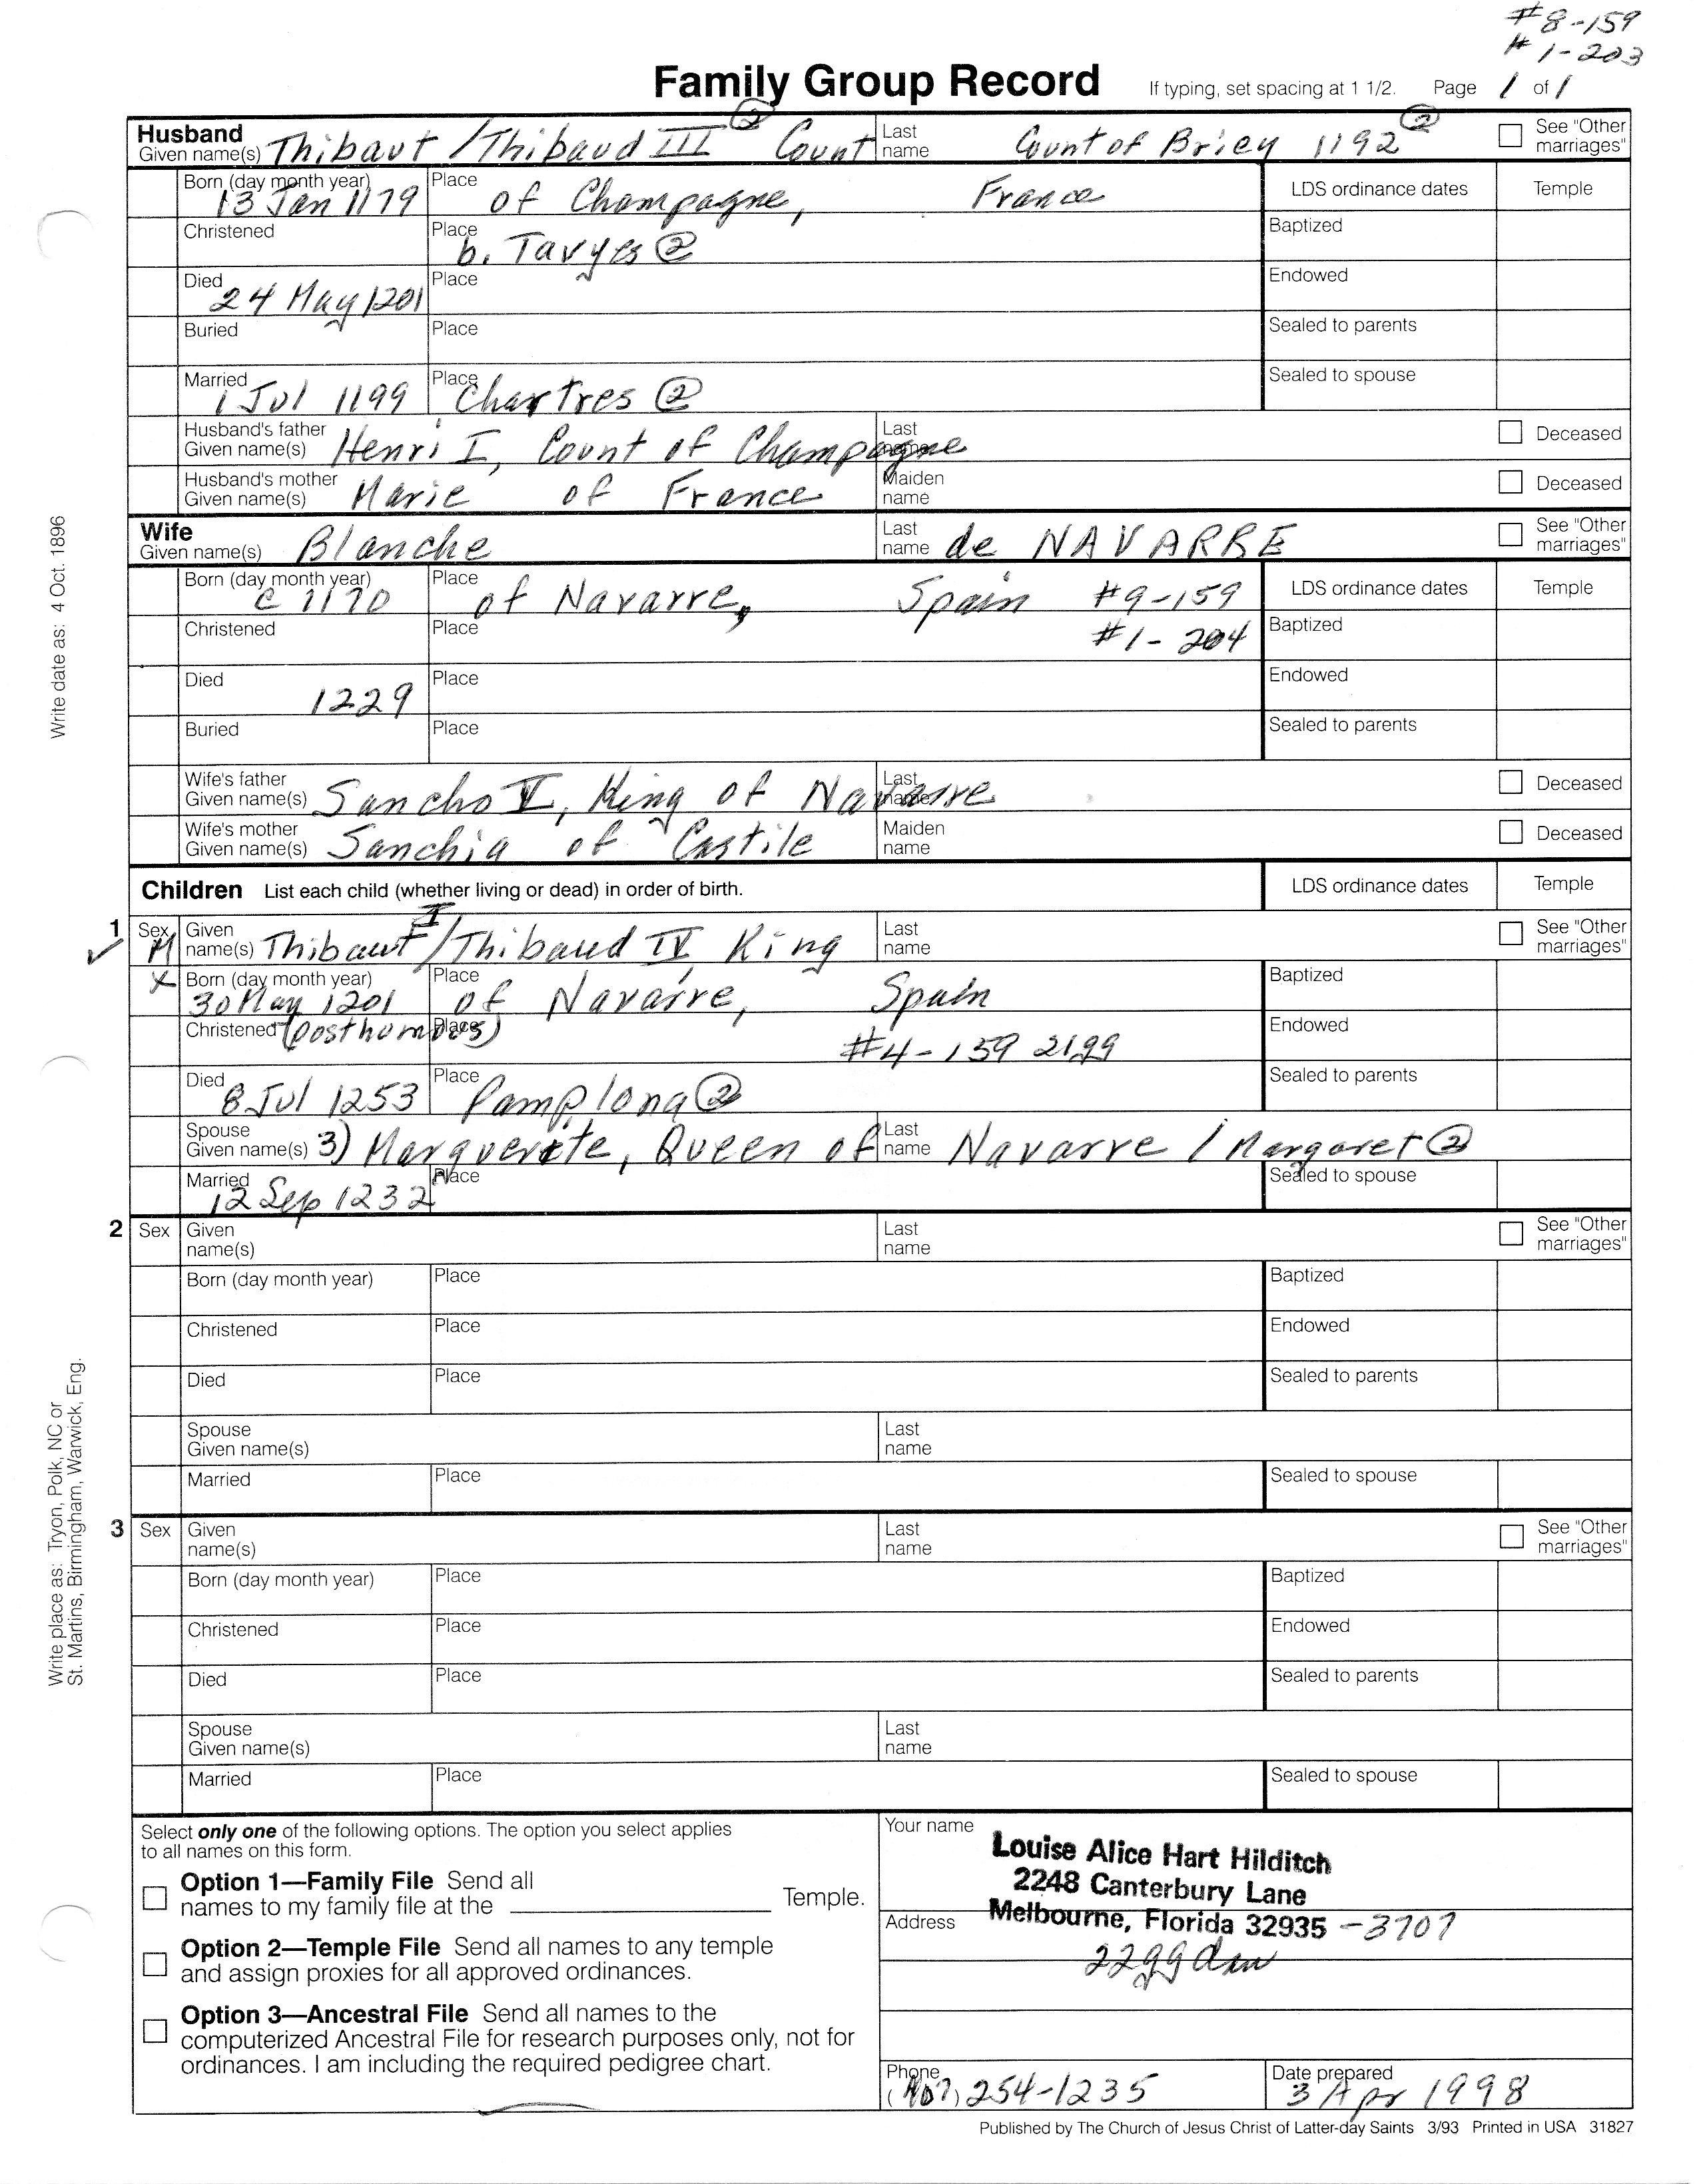 #8-159
#1-203
Family Group Record If typing, set spacing at 1 1/2. Page 1 of 1
Husband
Given name(s) Thibaut / Thibaud III ② Count Last name Count of Briey 1192 ② See "Other marriages"
Born (day month year) 13 Jan 1179 Place of Champagne, France LDS ordinance dates Temple
Christened Place b. Tavyes ② Baptized
Died 24 May 1201 Place Endowed
Buried Place Sealed to parents
Married 1 Jul 1199 Place Chartres ② Sealed to spouse
Husband's father Given name(s) Henri I, Count of Champagne Last name Deceased
Husband's mother Given name(s) Marie of France Maiden name Deceased
Wife
Given name(s) Blanche Last name de NAVARRE See "Other marriages"
Born (day month year) C 1170 Place of Navarre, Spain #9-159 LDS ordinance dates Temple
Christened Place #1-204 Baptized
Died 1229 Place Endowed
Buried Place Sealed to parents
Wife's father Given name(s) Sancho VI, King of Navarre Last name Deceased
Wife's mother Given name(s) Sanchia of Castile Maiden name Deceased
Children List each child (whether living or dead) in order of birth. LDS ordinance dates Temple
1 Sex M Given name(s) Thibaut I / Thibaud IV King Last name See "Other marriages"
X Born (day month year) 30 May 1201 Place of Navarre, Spain Baptized
Christened (posthumous) Place #4-159 2199 Endowed
Died 8 Jul 1253 Place Pamplona ② Sealed to parents
Spouse Given name(s) 3) Marguerite, Queen of Last name Navarre / Margaret ②
Married 12 Sep 1232 Place Sealed to spouse
2 Sex Given name(s) Last name See "Other marriages"
Born (day month year) Place Baptized
Christened Place Endowed
Died Place Sealed to parents
Spouse Given name(s) Last name
Married Place Sealed to spouse
3 Sex Given name(s) Last name See "Other marriages"
Born (day month year) Place Baptized
Christened Place Endowed
Died Place Sealed to parents
Spouse Given name(s) Last name
Married Place Sealed to spouse
Write date as: 4 Oct. 1896
Write place as: Tryon, Polk, NC or
St. Martins, Birmingham, Warwick, Eng.
Select only one of the following options. The option you select applies
to all names on this form.
Option 1—Family File Send all
names to my family file at the Temple.
Option 2—Temple File Send all names to any temple
and assign proxies for all approved ordinances.
Option 3—Ancestral File Send all names to the
computerized Ancestral File for research purposes only, not for
ordinances. I am including the required pedigree chart.
Your name
Louise Alice Hart Hilditch
2248 Canterbury Lane
Address Melbourne, Florida 32935 -3707
22gg
Phone (407) 254-1235
Date prepared 3 Apr 1998
Published by The Church of Jesus Christ of Latter-day Saints 3/93 Printed in USA 31827